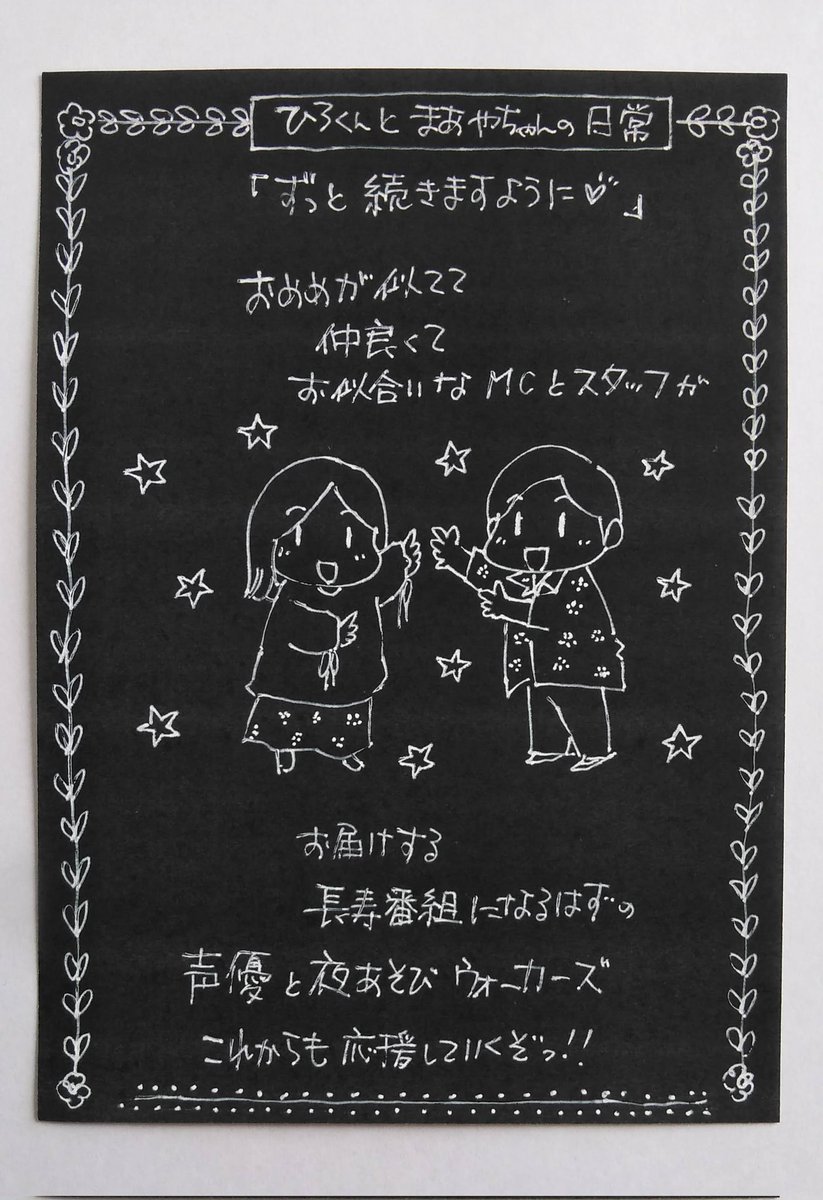 ひろくんとまあやちゃんの日常
「ずっと続きますように♡」
おめめが似てて
仲良くて
お似合いなMCとスタッフが
お届けする
長寿番組になるはずの
声優と夜あそびウォーカーズ
これからも応援していくぞっ!!